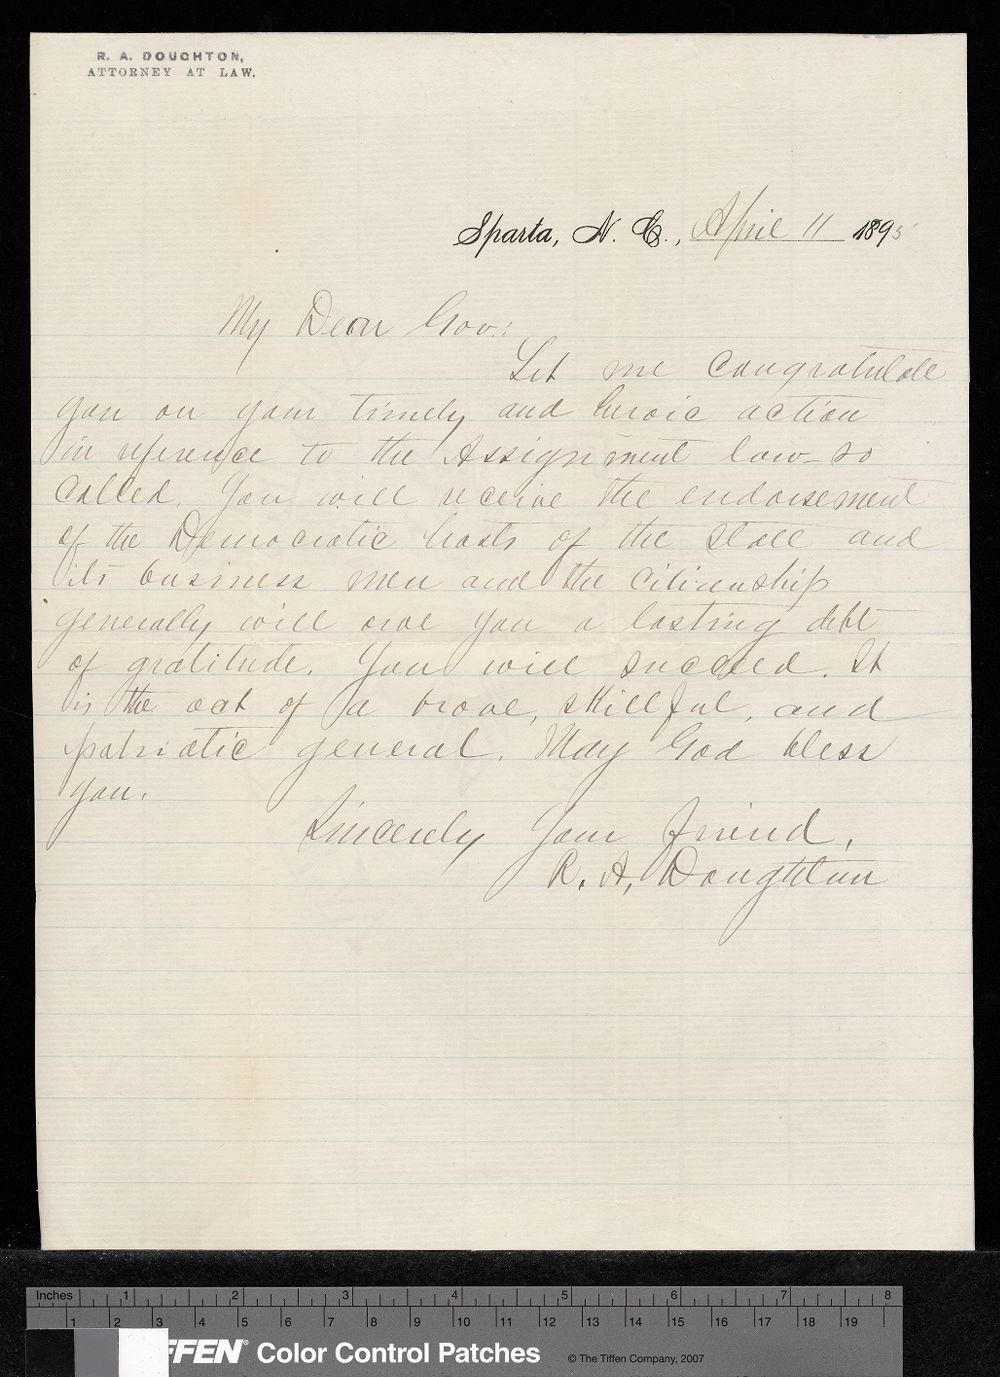 R. A. DOUGHTON,
ATTORNEY AT LAW.
Sparta, N. C., April 11 1895
My Dear Gov:
Let me congratulate
you on your timely and heroic action
in reference to the Assignment law- so
called. You will receive the endorsement
of the Democratic hosts of the state and
its business men and the citizenship
generally will owe you a lasting debt
of gratitude. You will succeed. It
is the act of a brave, skillful, and
patriotic general. May God bless
you.
Sincerely your friend,
R. A. Doughton
Inches 1 2 3 4 5 6 7 8
1 2 3 4 5 6 7 8 9 10 11 12 13 14 15 16 17 18 19
FFEN® Color Control Patches © The Tiffen Company, 2007